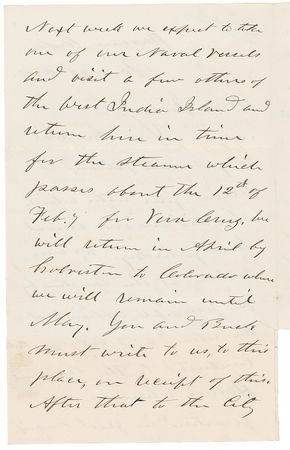 Next week we expect to take
one of our Naval Vessels
and visit a few others of
the West India Island and
return here in time
for the steamer which
passes about the 12th of
Feb.y for Vera Cruz. We
will return in April by
Galveston to Colorado where
we will remain until
May. You and Buck
must write to us, to this
place, on receipt of this.
After that to the City